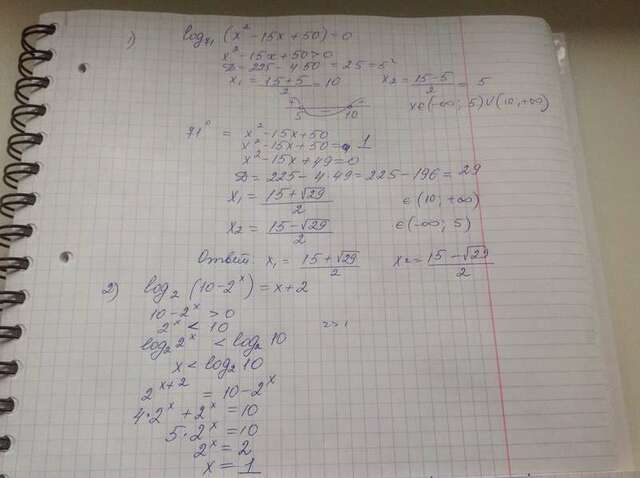 1) log₇₁ (x² - 15x + 50) = 0
x² - 15x + 50 > 0
D = 225 - 4·50 = 25 = 5²
x₁ = (15+5)/2 = 10 x₂ = (15-5)/2 = 5
+ - +
5 10 x∈(-∞; 5)∪(10; +∞)
71⁰ = x² - 15x + 50
x² - 15x + 50 = 1
x² - 15x + 49 = 0
D = 225 - 4·49 = 225 - 196 = 29
x₁ = (15+√29)/2 ∈ (10; +∞)
x₂ = (15-√29)/2 ∈ (-∞; 5)
Ответ: x₁ = (15+√29)/2 x₂ = (15-√29)/2
2) log₂ (10 - 2ˣ) = x + 2
10 - 2ˣ > 0
2ˣ < 10 2>1
log₂ 2ˣ < log₂ 10
x < log₂ 10
2ˣ⁺² = 10 - 2ˣ
4·2ˣ + 2ˣ = 10
5·2ˣ = 10
2ˣ = 2
x = 1